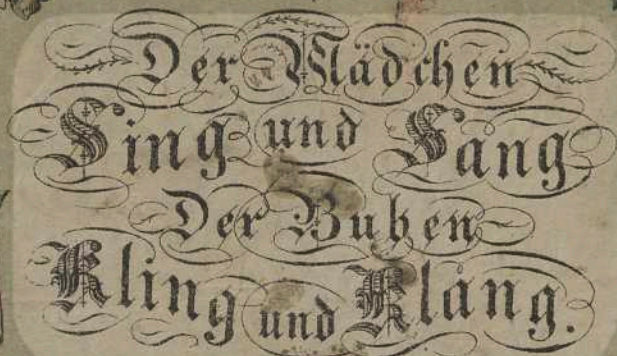 Der Mädchen
Sing und Sang
Der Buben
Kling und Klang.